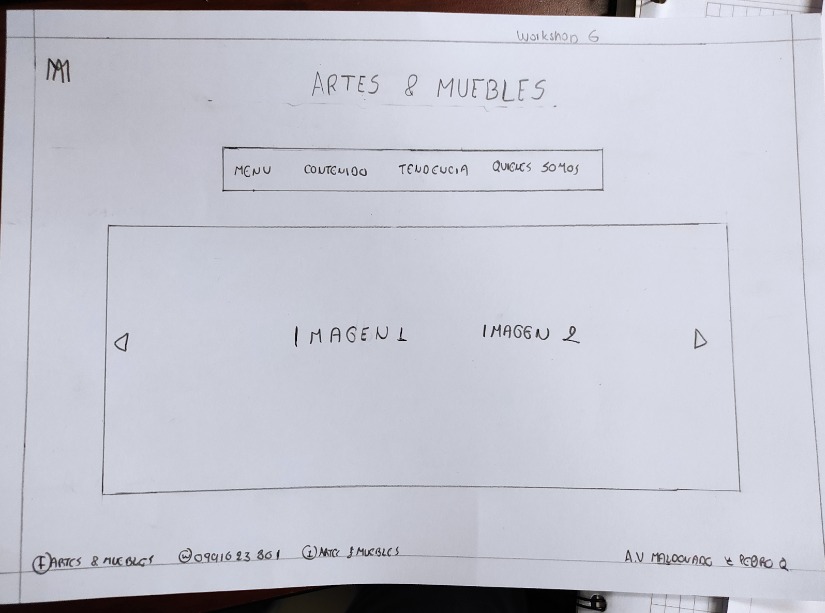 Workshop 6
AM
ARTES & MUEBLES.
MENU CONTENIDO TENDENCIA QUIENES SOMOS
IMAGEN 1 IMAGEN 2
f ARTES & MUEBLES W 0991623861 i ARTE & MUEBLES A.V MALDONADO Y PEDRO Q